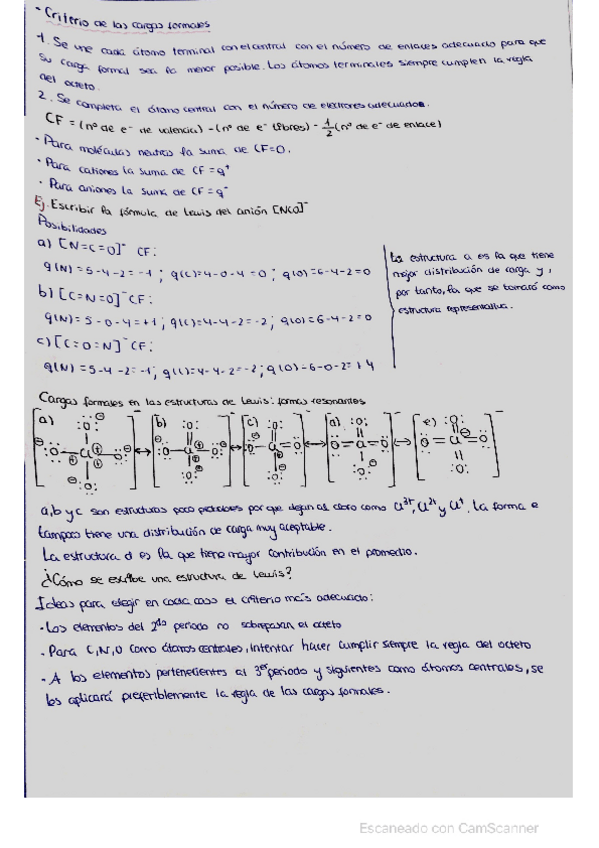 - Criterio de las cargas formales
1. Se une cada átomo terminal con el central con el número de enlaces adecuado para que
su carga formal sea la menor posible. Los átomos terminales siempre cumplen la regla
del octeto.
2. Se completa el átomo central con el número de electrones adecuados.
CF = (nº de e⁻ de valencia) - (nº de e⁻ libres) - 1/2 (nº de e⁻ de enlace)
· Para moléculas neutras la suma de CF=0.
· Para cationes la suma de CF = q⁺
· Para aniones la suma de CF = q⁻
Ej. Escribir la fórmula de Lewis del anión [NCO]⁻
Posibilidades
a) [N=C=O]⁻ CF:
q(N) = 5-4-2 = -1 ; q(C)=4-0-4 = 0 ; q(O)=6-4-2=0
b) [C=N=O]⁻ CF:
q(N) = 5-0-4=+1 ; q(C)=4-4-2=-2 ; q(O)=6-4-2=0
c) [C=O=N]⁻ CF:
q(N) = 5-4-2=-1; q(C)=4-4-2=-2; q(O)=6-0-2=+4
La estructura a es la que tiene
mejor distribución de carga y,
por tanto, la que se tomará como
estructura representativa.
Cargas formales en las estructuras de Lewis: formas resonantes
a) b) c) d) e)
a, b y c son estructuras poco probables por que dejan al cloro como Cl³⁺, Cl²⁺ y Cl⁺. La forma e
tampoco tiene una distribución de carga muy aceptable.
La estructura d es la que tiene mayor contribución en el promedio.
¿Cómo se escribe una estructura de Lewis?
Ideas para elegir en cada caso el criterio más adecuado:
· Los elementos del 2do periodo no sobrepasan el octeto
· Para C, N, O como átomos centrales, intentar hacer cumplir siempre la regla del octeto
· A los elementos pertenecientes al 3er periodo y siguientes como átomos centrales, se
les aplicará preferiblemente la regla de las cargas formales.
Escaneado con CamScanner